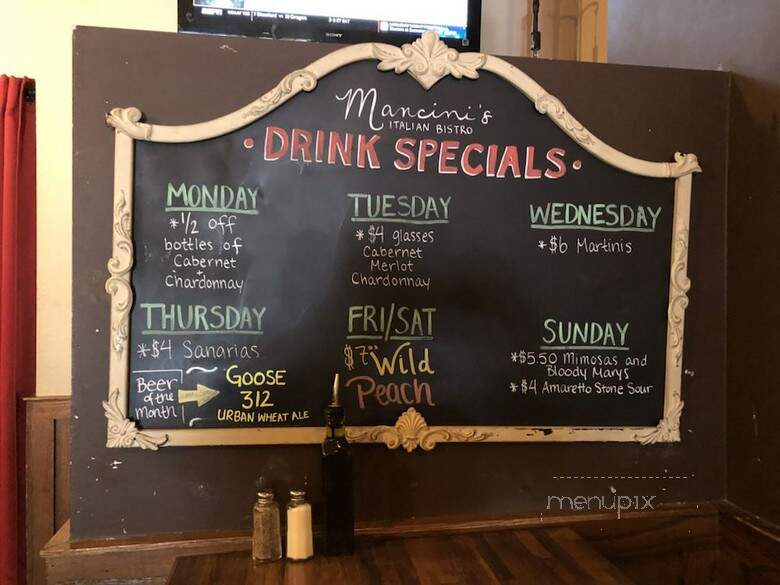 Mancini's
ITALIAN BISTRO
• DRINK SPECIALS •
MONDAY
* 1/2 off
bottles of
Cabernet
+
Chardonnay
TUESDAY
* $4 glasses
Cabernet
Merlot
Chardonnay
WEDNESDAY
* $6 Martinis
THURSDAY
* $4 Sangrias
Beer
of the
Month
GOOSE
312
URBAN WHEAT ALE
FRI/SAT
$7 Wild
Peach
SUNDAY
* $5.50 Mimosas and
Bloody Marys
* $4 Amaretto Stone Sour
menupix